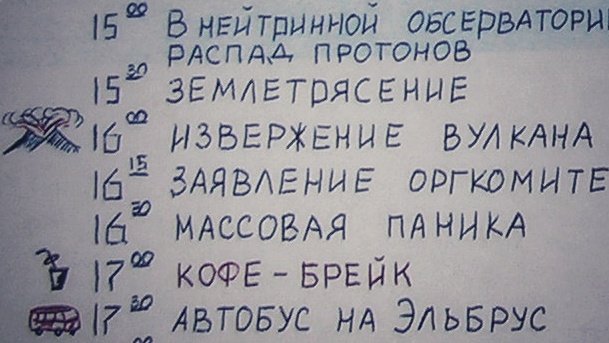 15⁰⁰ В НЕЙТРИННОЙ ОБСЕРВАТОРИИ
РАСПАД ПРОТОНОВ
15³⁰ ЗЕМЛЕТРЯСЕНИЕ
16⁰⁰ ИЗВЕРЖЕНИЕ ВУЛКАНА
16¹⁵ ЗАЯВЛЕНИЕ ОРГКОМИТЕ
16³⁰ МАССОВАЯ ПАНИКА
17⁰⁰ КОФЕ-БРЕЙК
17³⁰ АВТОБУС НА ЭЛЬБРУС